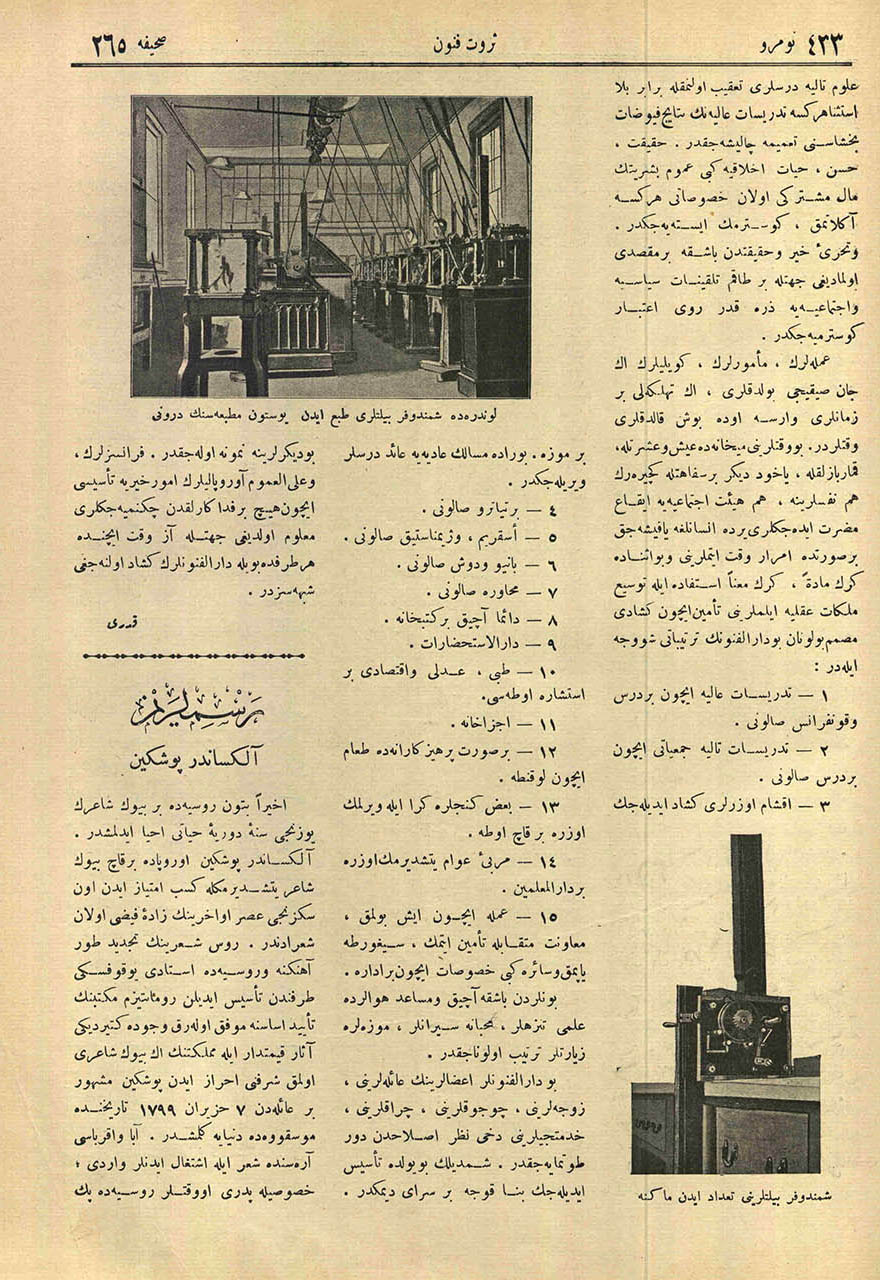 نومرو ٤٣٣
ثروت فنون
صحیفه ٢٦٥
علوم تالیه درسلری تعقیب اولنمقله برابر بلا
استثنا هرکسه تدریسات عالیه‌نك نتایج فیوضات
بخشاسنی تعمیمه چالیشه‌جقدر . حقیقت ،
حسن ، حیات اخلاقیه کبی عموم بشریتك
مال مشترکی اولان خصوصاتی هرکسه
آکلاتمق ، کوسترمك ایسته‌یه‌جکدر .
وتحرئ خیر وحقیقتدن باشقه بر مقصدی
اولمادیغی جهتله بر طاقم تلقینات سیاسیه
واجتماعیه‌یه ذره قدر روی اعتبار
کوسترمیه‌جکدر .
عمله‌لرك ، مأمورلرك ، کویلیلرك اك
جان صیقیجی بولدقلری ، اك تهلکه‌لی بر
زمانلری وارسه اوده بوش قالدقلری
وقتلردر . بووقتلرینی میخانه‌ده عیش وعشرتله ،
قمار بازلقله ، یاخود دیکر بر سفاهتله کچیره‌رك
هم نفسلرینه ، هم هیئت اجتماعیه‌یه ایقاع
مضرت ایده‌جکلری یرده انسانلغه یاقیشه‌جق
بر صورتده امرار وقت ایتملرینی وبوائناده
کرك مادةً ، کرك معناً استفاده ایله توسیع
ملکات عقلیه ایلملرینی تأمین ایچون کشادی
مصمم بولونان بودارالفنونك ترتیباتی شووجه
ایله‌در :
١ — تدریسات عالیه ایچون بر درس
وقونفرانس صالونی .
٢ — تدریسات تالیه جمعیاتی ایچون
بر درس صالونی .
٣ — اقشام اوزرلری کشاد ایدیله‌جك
شمندوفر بیلتلرینی تعداد ایدن ماکنه
لوندره‌ده شمندوفر بیلتلری طبع ایدن یوستون مطبعه‌سنك درونی
بر موزه . بوراده مسالك عادیه‌یه عائد درسلر
ویریله‌جکدر .
٤ — بر تیاترو صالونی .
٥ — أسقریم ، وژیمناستیق صالونی .
٦ — بانیو ودوش صالونی .
٧ — محاوره صالونی .
٨ — دائما آچیق بر کتبخانه .
٩ — دارالاستحضارات .
١٠ — طبی ، عدلی واقتصادی بر
استشاره اوطه‌سی.
١١ — اجزاخانه .
١٢ — بر صورت پرهیزکارانه‌ده طعام
ایچون لوقنطه .
١٣ — بعض کنجلره کرا ایله ویرلمك
اوزره بر قاچ اوطه .
١٤ — مربئ عوام یتشدیرمك اوزره
بر دارالمعلمین .
١٥ — عمله ایچون ایش بولمق ،
معاونت متقابله تأمین ایتمك ، سیغورطه
یاپمق وسائره کبی خصوصات ایچون بر اداره .
بونلردن باشقه آچیق ومساعد هوالرده
علمی تنزهلر ، محبانه سیرانلر ، موزه‌لره
زیارتلر ترتیب اولوناجقدر .
بو دارالفنونلر اعضالرینك عائله‌لرینی ،
زوجه‌لرینی ، چوجوقلرینی ، چراقلرینی ،
خدمتجیلرینی دخی نظر اصلاحدن دور
طوتمایه‌جقدر . شمدیلك بو یولده تأسیس
ایدیله‌جك بنا قوجه بر سرای دیمکدر .
بودیکرلرینه نمونه اوله‌جقدر . فرانسزلرك ،
وعلی العموم آوروپالیلرك امور خیریه تأسیسی
ایچون هیچ بر فداکارلقدن چکنمیه‌جکلری
معلوم اولدیغی جهتله آز وقت ایچنده
هر طرفده بویله دارالفنونلرك کشاد اولنه‌جغی
شبهه‌سزدر .
قدری
رسملریمز
آلکساندر پوشکین
اخیراً بتون روسیه‌ده بر بیوك شاعرك
یوزنجی سنۀ دوریۀ حیاتی احیا ایدلمشدر .
آلکساندر پوشکین اوروپاده بر قاچ بیوك
شاعر یتشدیرمکله کسب امتیاز ایدن اون
سکزنجی عصر اواخرینك زادۀ فیضی اولان
شعرادندر . روس شعرینك تجدید طور
آهنکنه وروسیه‌ده استادی یوقوفسکی
طرفندن تأسیس ایدیلن رومانتیزم مکتبنك
تأیید اساسنه موفق اوله‌رق وجوده کتیردیکی
آثار قیمتدار ایله مملکتنك اك بیوك شاعری
اولمق شرفنی احراز ایدن پوشکین مشهور
بر عائله‌دن ٧ حزیران ١٧٩٩ تاریخنده
موسقووه‌ده دنیایه کلمشدر . آبا واقرباسی
آره‌سنده شعر ایله اشتغال ایدنلر واردی ؛
خصوصیله پدری اووقتلر روسیه‌ده پك